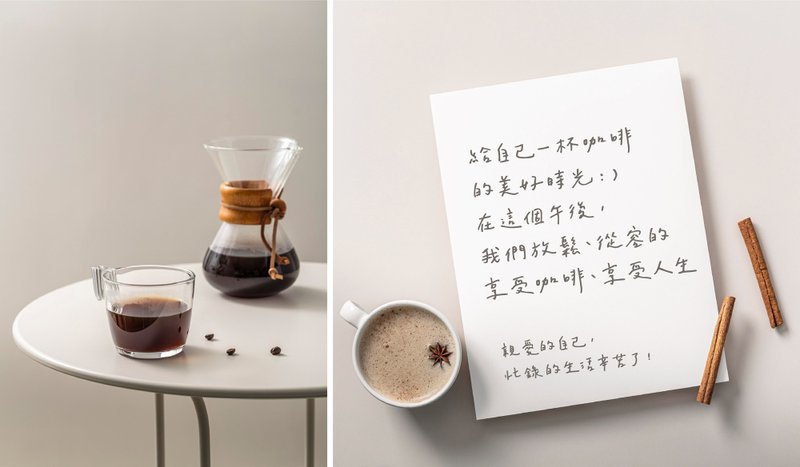 給自己一杯咖啡
的美好時光:)
在這個午後,
我們放鬆、從容的
享受咖啡、享受人生
親愛的自己,
忙錄的生活辛苦了!